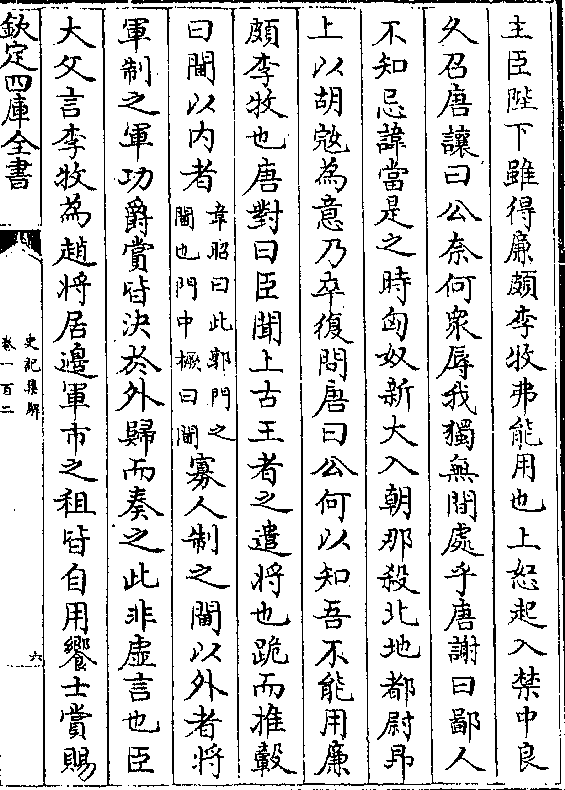 主臣陛下雖得廉頗李牧弗能用也上怒起入禁中良
久召唐讓曰公奈何衆辱我獨無間處乎唐謝曰鄙人
不知忌諱當是之時匈奴新大入朝那殺北地都尉卬
上以胡𡨥為意乃卒復問唐曰公何以知吾不能用廉
頗李牧也唐對曰臣聞上古王者之遣將也跪而推轂
曰閫以内者
韋昭曰此郭門之
閫也門中橛曰閫
寡人制之閫以外者將
軍制之軍功爵賞皆決於外歸而奏之此非虛言也臣
大父言李牧為趙將居邊軍市之租皆自用饗士賞賜
欽定四庫全書
史記集解
卷一百二
六